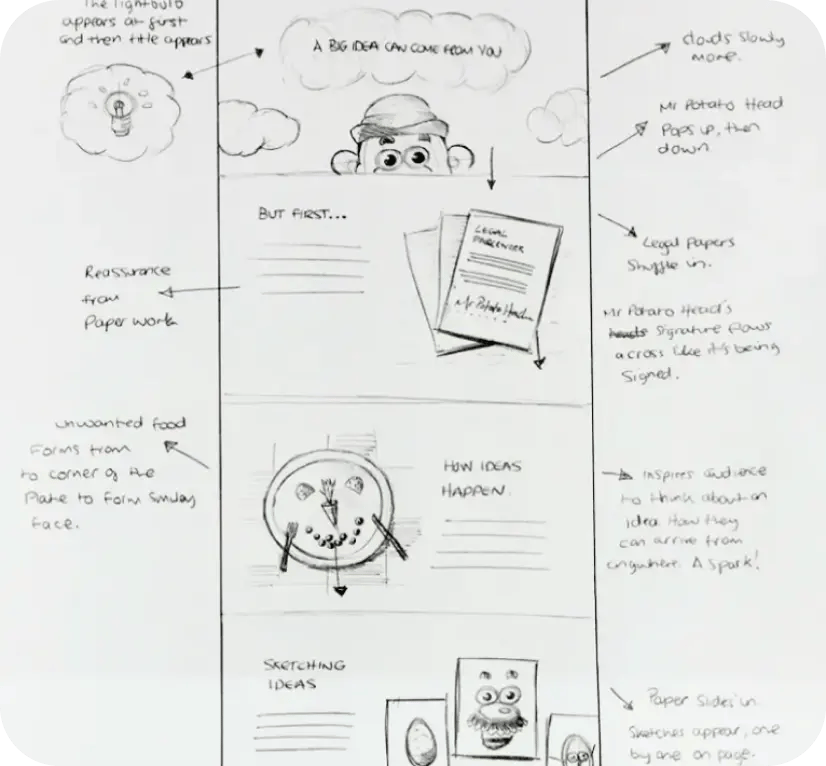 The lightbulb
appears at first
and then title appears
A BIG IDEA CAN COME FROM YOU
clouds slowly
move.
Mr Potato Head
Pops up, then
down
BUT FIRST...
LEGAL
Mr Potato Head
Legal Papers
Shuffle in.
Reassurance
from
Paper work
Mr Potato Head's
signature flows
across like it's being
Signed.
unwanted food
Forms from
to corner of the
Plate to form Smiley
face.
HOW IDEAS
HAPPEN.
Inspires audience
to think about an
idea. How they
can arrive from
anywhere. A Spark!
SKETCHING
IDEAS
Paper Slides in
Sketches appear, one
by one on page.